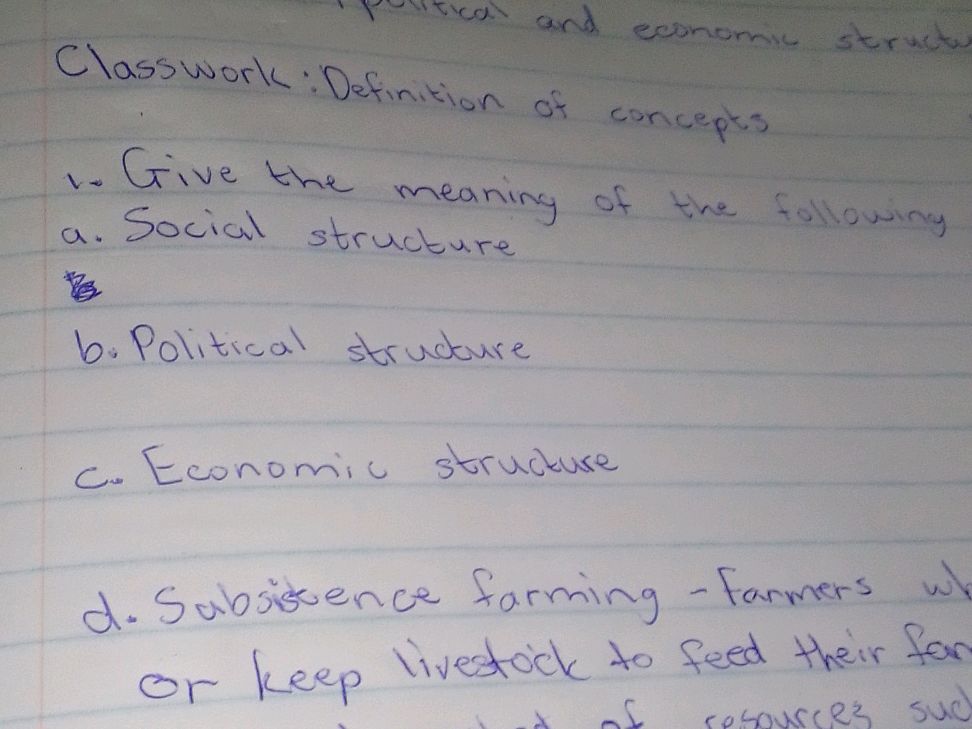 political and economic
Classwork: Definition of concepts
1. Give the meaning of the following
a. Social structure
b. Political structure
c. Economic structure
d. Subsistence farming - Farmers
or keep livestock to feed their
of resources